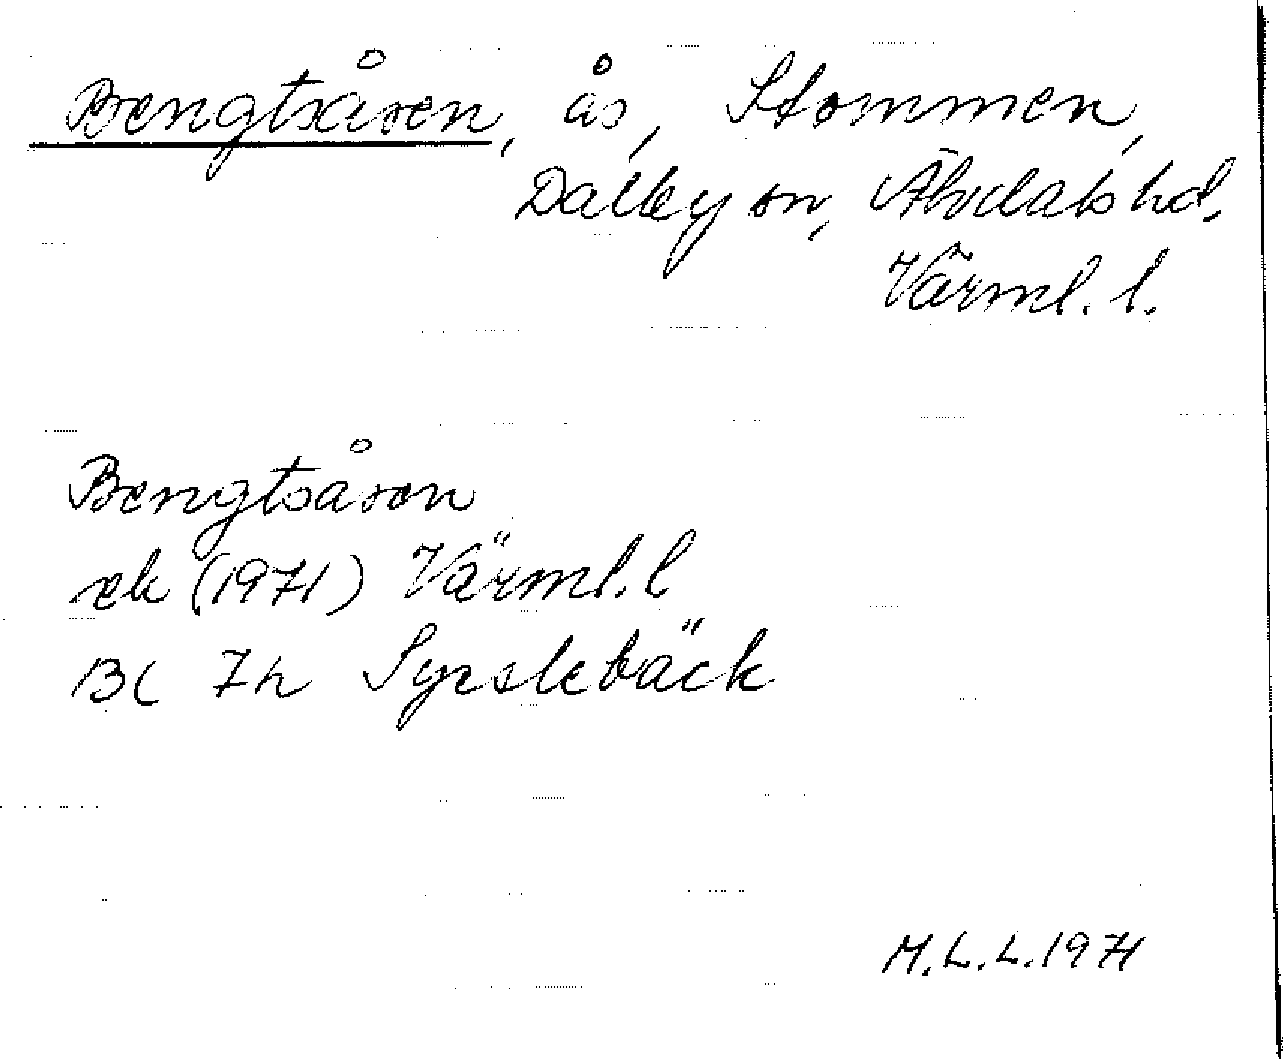 Bengtsåsen, ås, Stommen,
Dalby sn, Älvdals hd,
Värml. l.
Bengtsåsen
ek (1971) Värml. l
BC 7h Sysslebäck
M.L.L. 1971